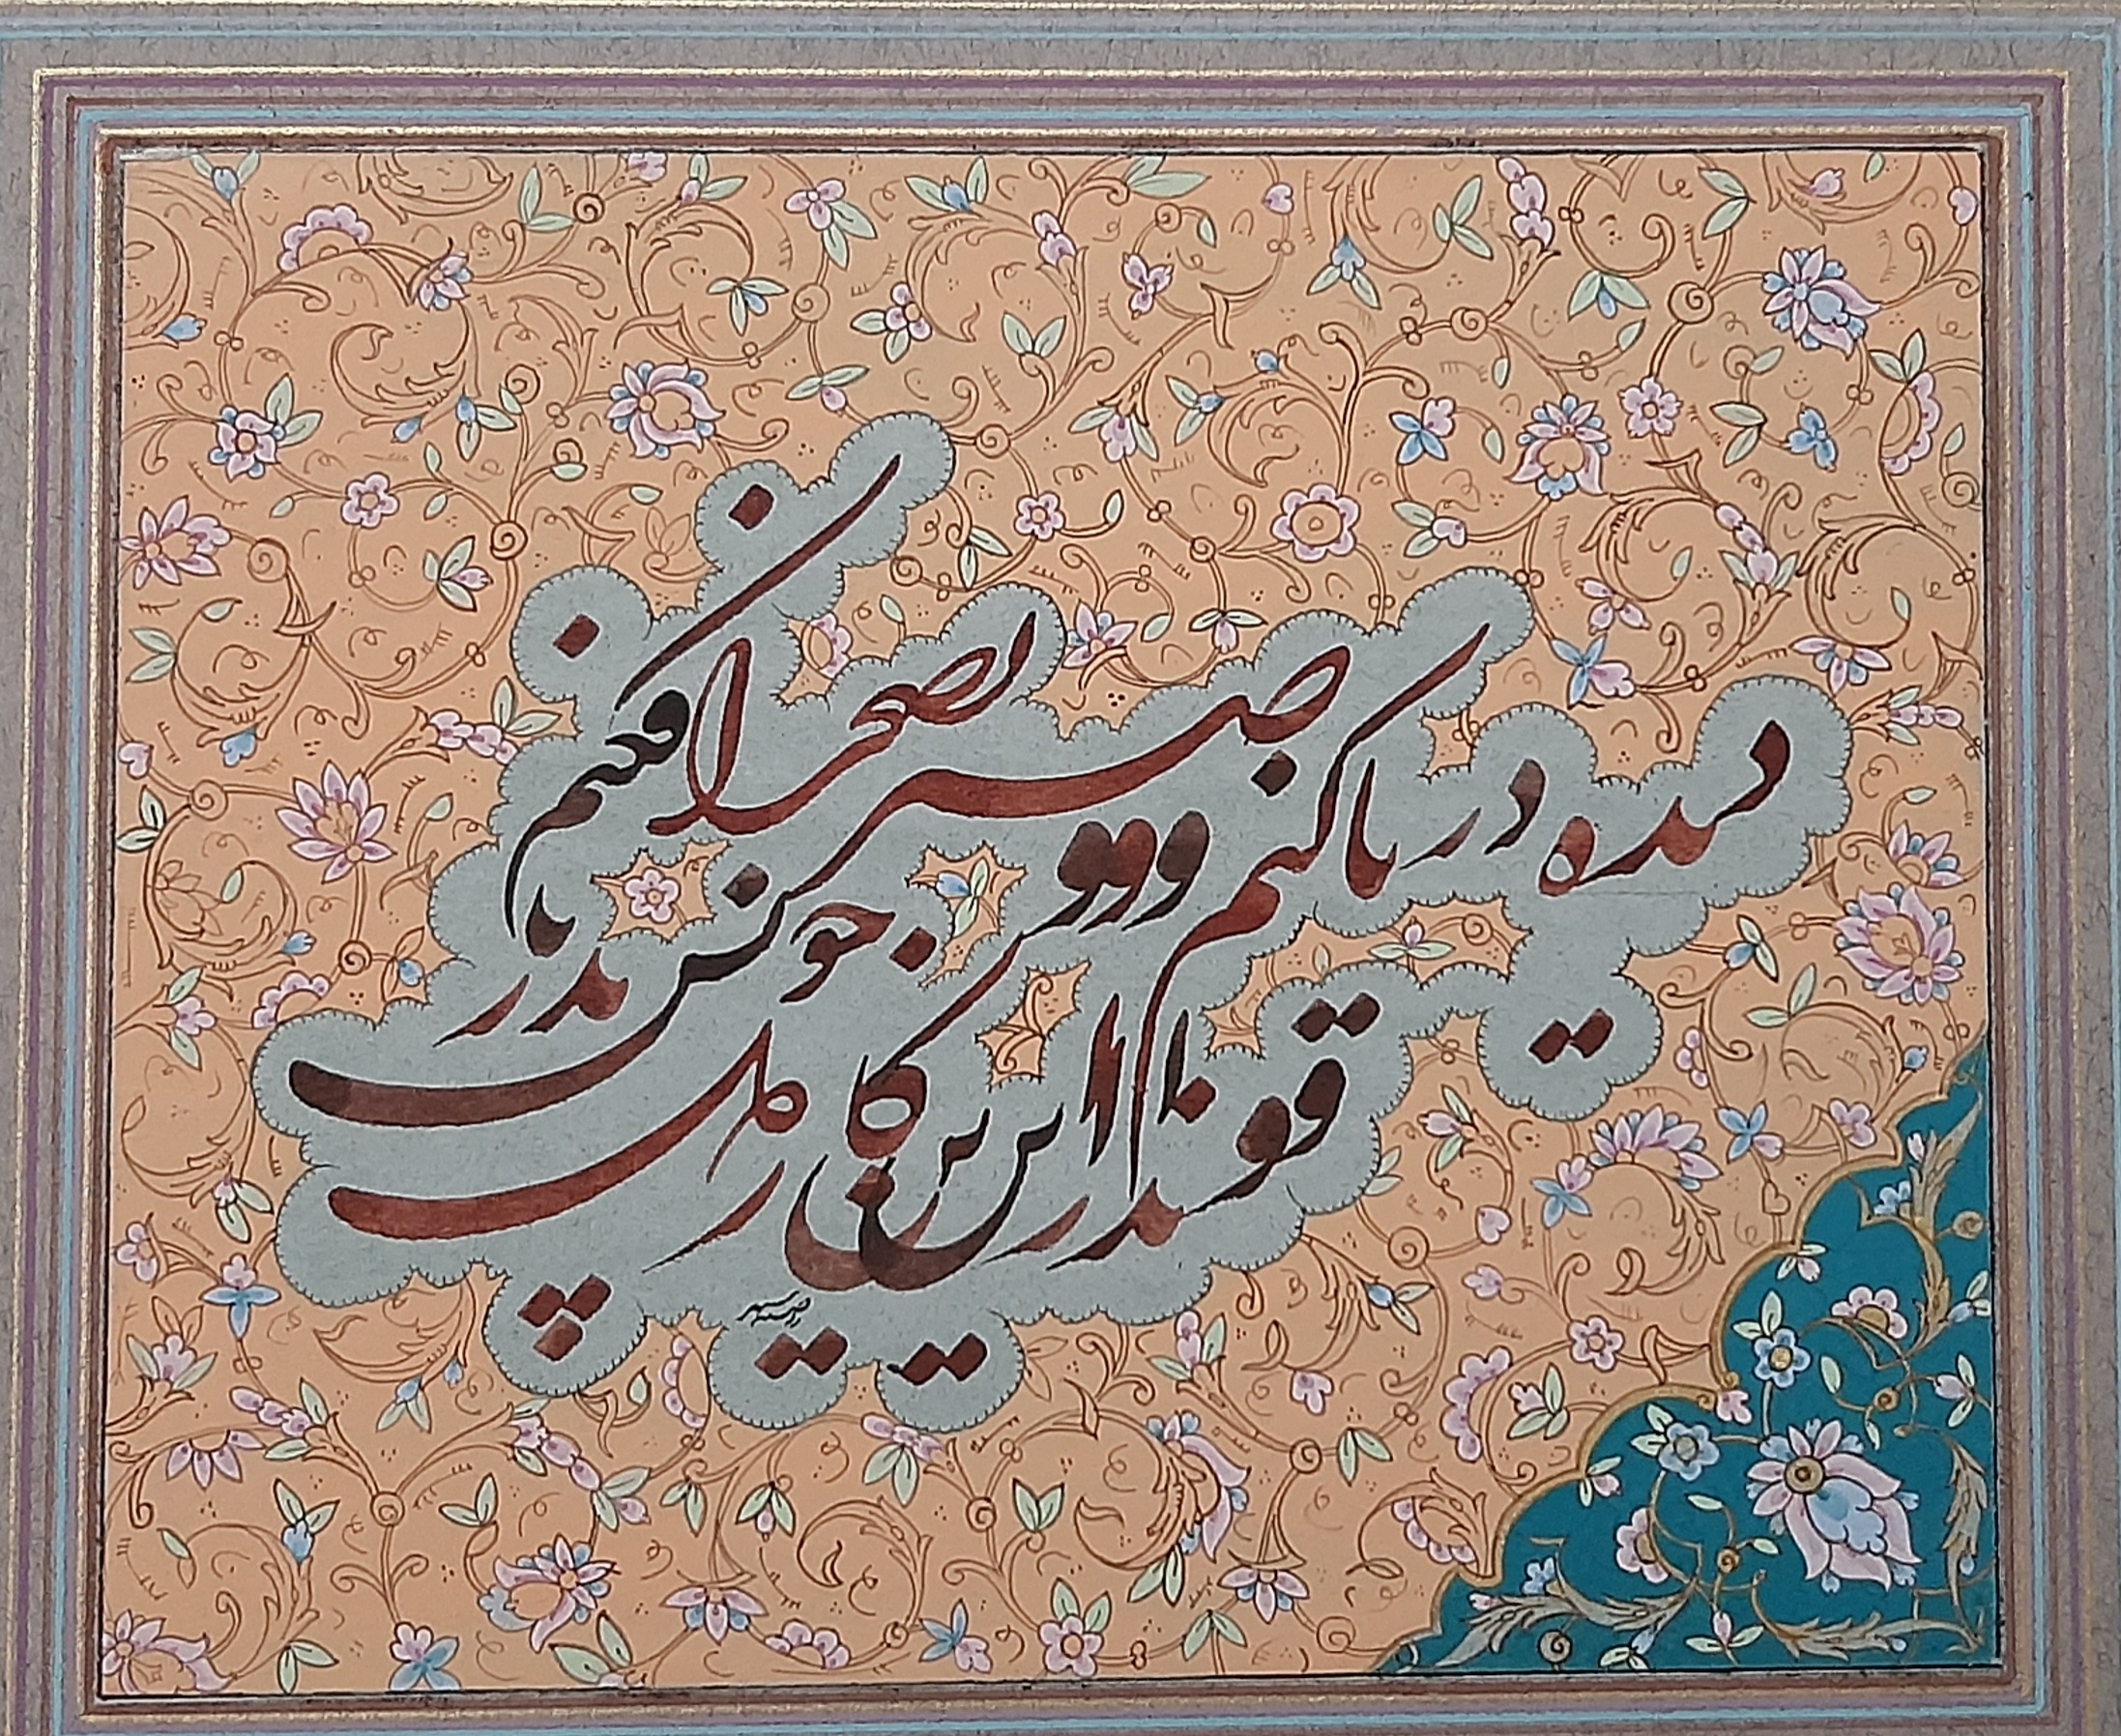 دیده دریا کنم و صبر بصحرا فکنم
و اندرین کار دل خویش بدریا فکنم